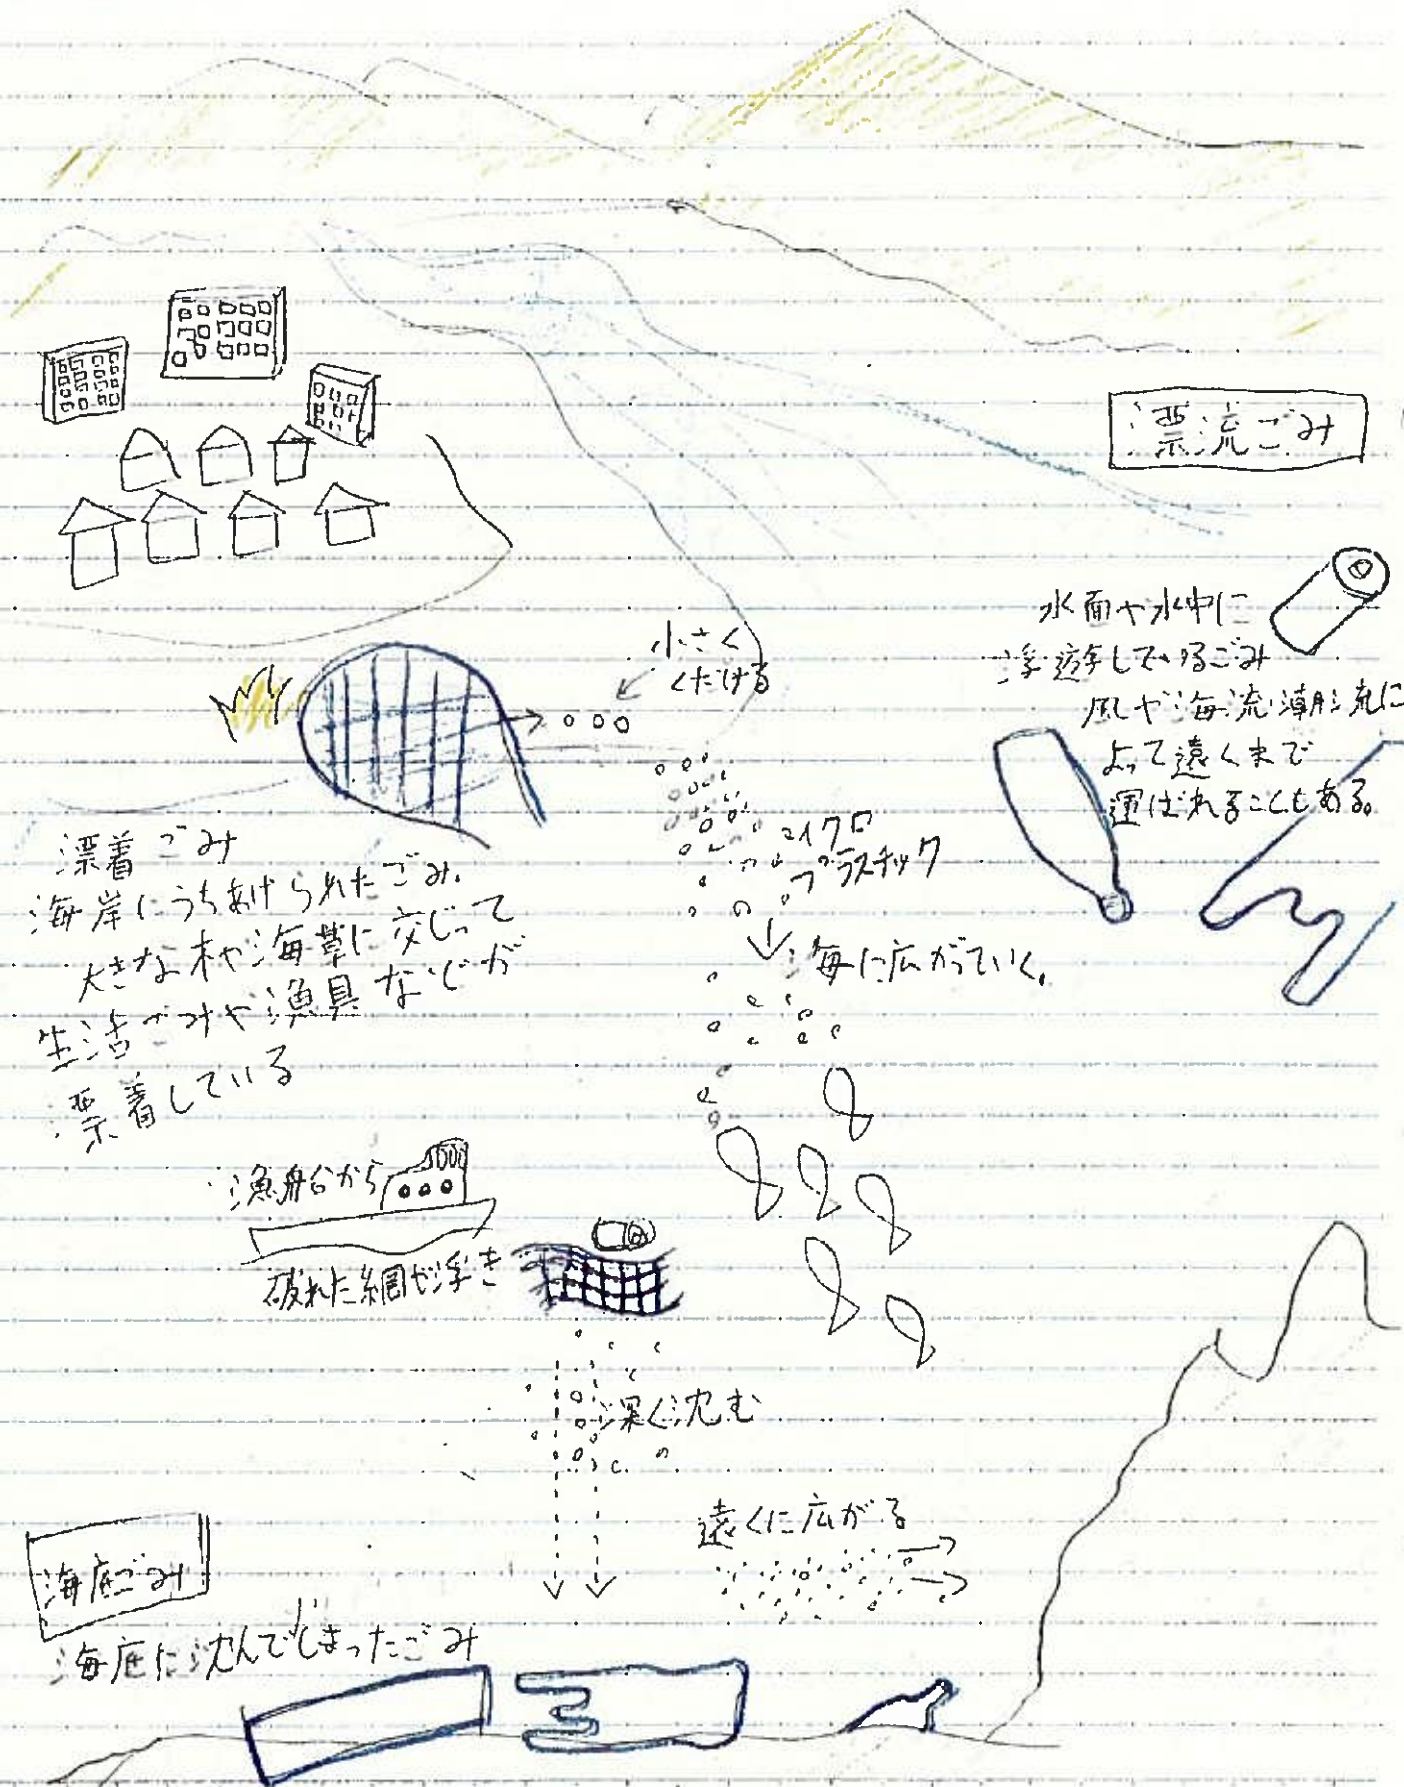 漂流ごみ
水面や水中に
浮遊しているごみ
風や海流潮流に
よって遠くまで
運ばれることもある。
小さく
くだける
マイクロ
プラスチック
海に広がっていく。
漂着ごみ
海岸にうちあげられたごみ。
大きな木や海草に交じって
生活ごみや漁具などが
漂着している
漁船から
破れた網や浮き
深く沈む
遠くに広がる
海底ごみ
海底に沈んでしまったごみ